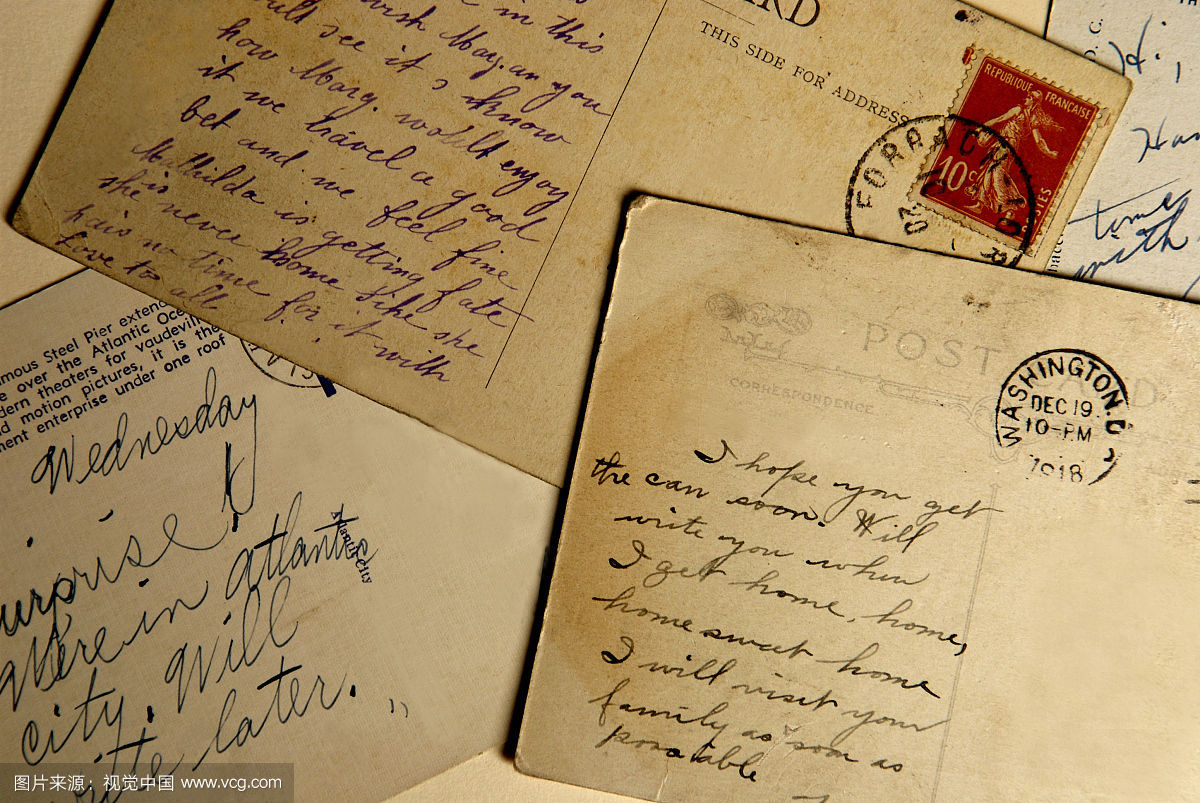 in this
wish Mary. an you
will see it & know
how Marg. would enjoy
it we travel a good
bet and we feel fine
Mathilda is getting fate
she is never home like she
hais no time for it with
love to all
ARD
THIS SIDE FOR ADDRESS
REPUBLIQUE FRANÇAISE
10c
POSTES
FORBACH
Hi,
time
with
amous Steel Pier exten
e over the Atlantic Oce
dern theaters for vaudevil
nd motion pictures, it is the
ment enterprise under one roof
Wednesday
urprise!
Were in atlantic
city. Will
write later.
POST CARD
CORRESPONDENCE
WASHINGTON, D
DEC 19
10-PM
1918
I hope you get
the can soon. Will
write you when
I get home, home,
home sweet home
I will visit your
family as soon as
possiable
图片来源：视觉中国 www.vcg.com